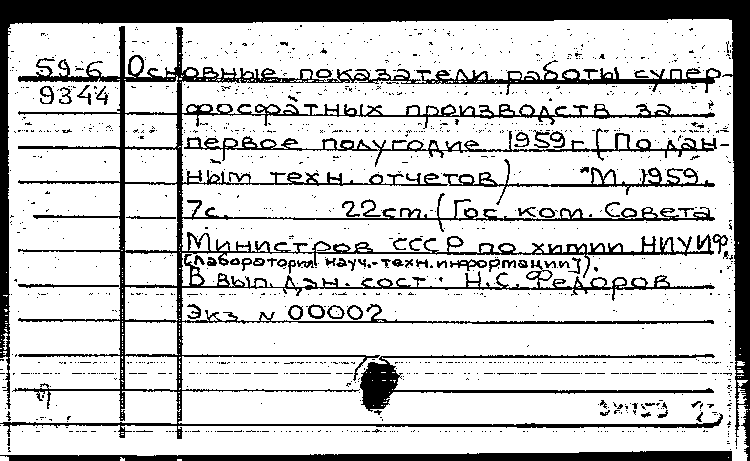 59-6 Основные показатели работы супер-
9344 фосфатных производств за
первое полугодие 1959г. (По дан-
ным техн. отчетов) М, 1959.
7с. 22см. (Гос. ком. Совета
Министров СССР по химии. НИУИФ.
[Лаборатория науч.-техн. информации]).
В вып. дан. сост. Н.С. Федоров
Экз. N 00002
23